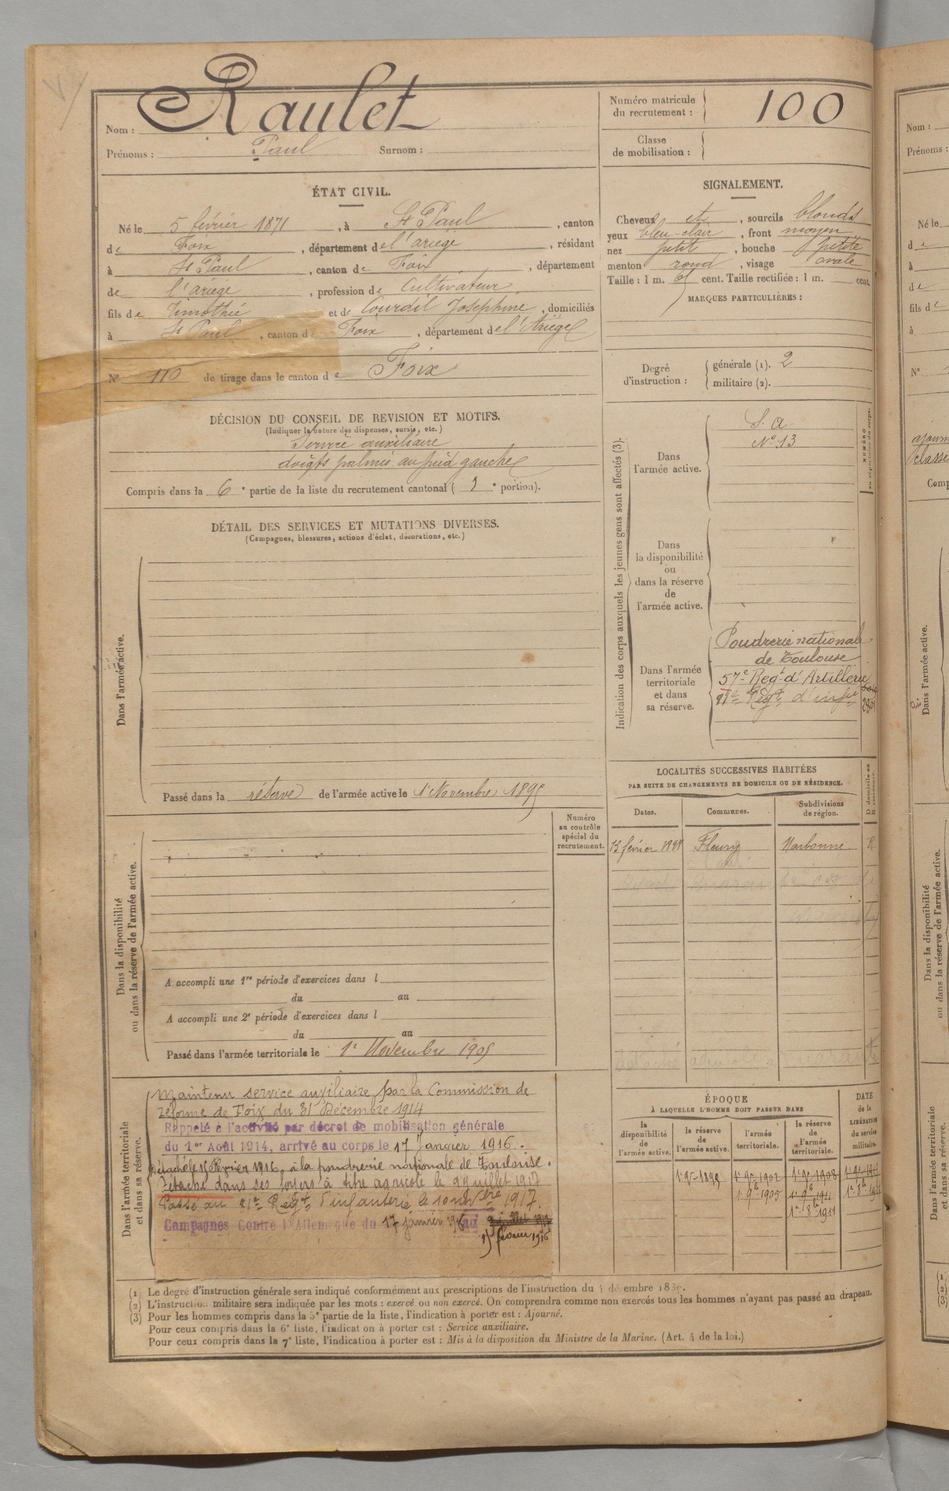 Nom : Raulet
Prénoms : Paul Surnom :
Numéro matricule
du recrutement : 100
Classe
de mobilisation :
ÉTAT CIVIL.
Né le 5 février 1871, à St Paul, canton
de Foix, département de l'ariege, résidant
à St Paul, canton de Foix, département
de l'ariege, profession de Cultivateur
fils de Timothée et de Courdil Josephine, domiciliés
à St Paul, canton de Foix, département de l'Ariège
N° 110 de tirage dans le canton de Foix
SIGNALEMENT.
Cheveux et, sourcils blonds
yeux bleu-clair, front moyen
nez petit, bouche petite
menton rond, visage ovale
Taille : 1 m. cent. Taille rectifiée : 1 m. cent.
MARQUES PARTICULIÈRES :
Degré
d'instruction :
générale (1). 2
militaire (2).
DÉCISION DU CONSEIL DE REVISION ET MOTIFS.
(Indiquer la nature des dispenses, sursis, etc.)
Service auxiliaire
doigts palmés au pied gauche
Compris dans la 6e partie de la liste du recrutement cantonal ( e portion).
DÉTAIL DES SERVICES ET MUTATIONS DIVERSES.
(Campagnes, blessures, actions d'éclat, décorations, etc.)
Dans l'armée active.
Passé dans la réserve de l'armée active le 1 Novembre 1895
Indication des corps auxquels les jeunes gens sont affectés (3).
Dans
l'armée active.
S. A
N° 13
NUMÉRO
Dans
la disponibilité
ou
dans la réserve
de
l'armée active.
Dans l'armée
territoriale
et dans
sa réserve.
Poudrerie nationale
de Toulouse
57e Regt d'Artillerie
Regt d'infie
LOCALITÉS SUCCESSIVES HABITÉES
PAR SUITE DE CHANGEMENTS DE DOMICILE OU DE RÉSIDENCE.
Dates. Communes. Subdivisions
de région.
février Fleury Narbonne R
Numéro
au contrôle
spécial du
recrutement.
Dans la disponibilité
ou dans la réserve de l'armée active.
A accompli une 1re période d'exercices dans l
du au
A accompli une 2e période d'exercices dans l
du au
Passé dans l'armée territoriale le 1er Novembre 1905
Dans l'armée territoriale
et dans sa réserve.
Maintenu service auxiliaire par la Commission de
réforme de Foix du 31 Décembre 1914
Rappelé à l'activité par décret de mobilisation générale
du 1er Août 1914, arrivé au corps le 17 Janvier 1916.
Détaché le 15 Février 1916, à la poudrerie nationale de Toulouse.
Détaché dans ses foyers à titre agricole le 29 juillet 1917
Passé au Regt d'infanterie le 10 novbre 1917.
Campagnes Contre l'Allemagne du 17 janvier 1916 au
15 février 1916
ÉPOQUE
À LAQUELLE L'HOMME DOIT PASSER DANS
la
disponibilité
de
l'armée active.
la réserve
de
l'armée active.
l'armée
territoriale.
la réserve
de
l'armée
territoriale.
DATE
de la
LIBÉRATION
du service
militaire.
(1) Le degré d'instruction générale sera indiqué conformément aux prescriptions de l'instruction du décembre
(2) L'instruction militaire sera indiquée par les mots : exercé ou non exercé. On comprendra comme non exercés tous les hommes n'ayant pas passé au drapeau.
(3) Pour les hommes compris dans la 5e partie de la liste, l'indication à porter est : Ajourné.
Pour ceux compris dans la 6e liste, l'indication à porter est : Service auxiliaire.
Pour ceux compris dans la 7e liste, l'indication à porter est : Mis à la disposition du Ministre de la Marine. (Art. 4 de la loi.)